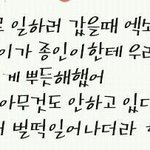 일하러 갔을때 엑
이가 종인이한테 우리
게 뿌듯해했어
아무것도 안하고 있다
벌떡일어나더라